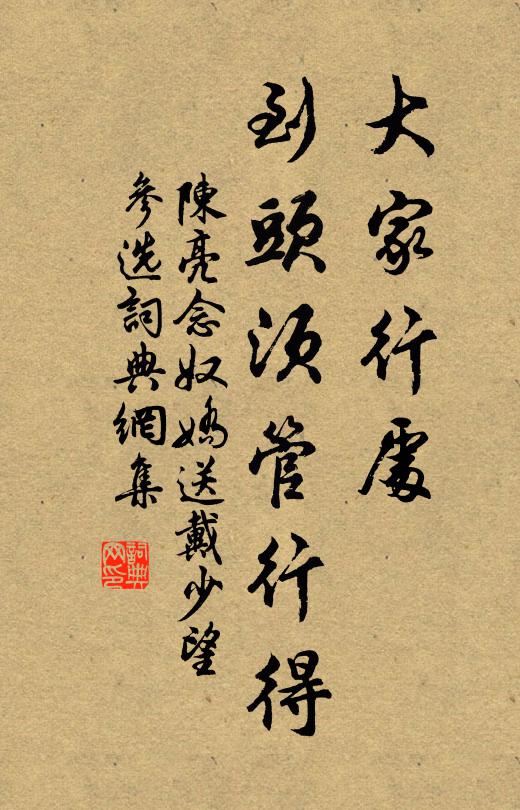 大家行處
到頭須管行得
陳亮念奴嬌送戴少望
參选詞典網集
詞典网印